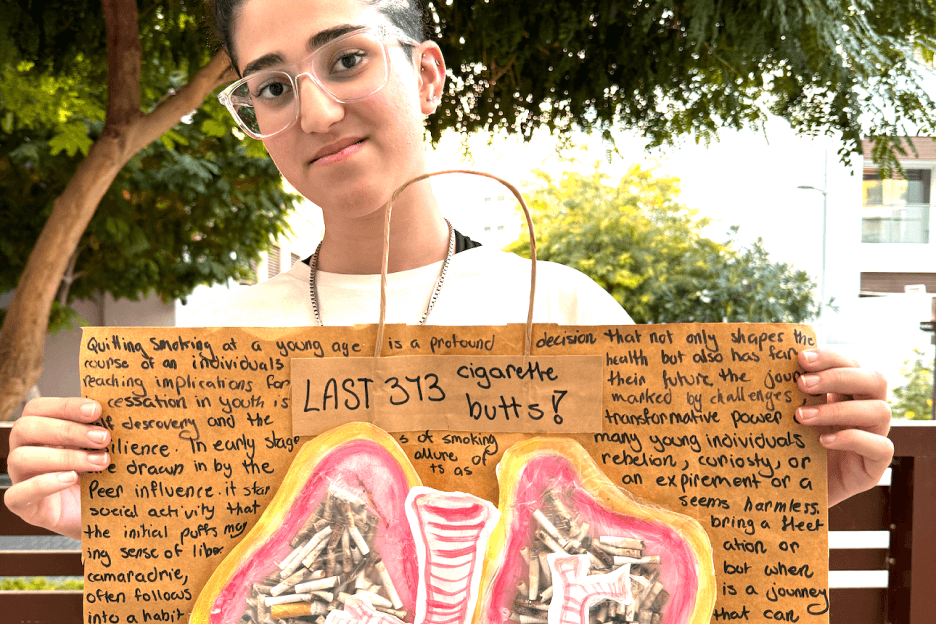 Quitting smoking at a young age is a profound decision that not only shapes the
course of an individuals health but also has far
reaching implications for their future, the jour
cessation in youth is marked by challenges
lf descrovery and the transformative power
ilience. In early stage s of smoking many young individuals
e drawn in by the allure of rebelion, curiosty, or
Peer influence. it star ts as an expirement or a
social activity that seems harmless.
the initial puffs may bring a fleet
ing sense of liber ation or
camaradrie, but when
often follows is a journey
into a habit that can
LAST 373 cigarette
butts!